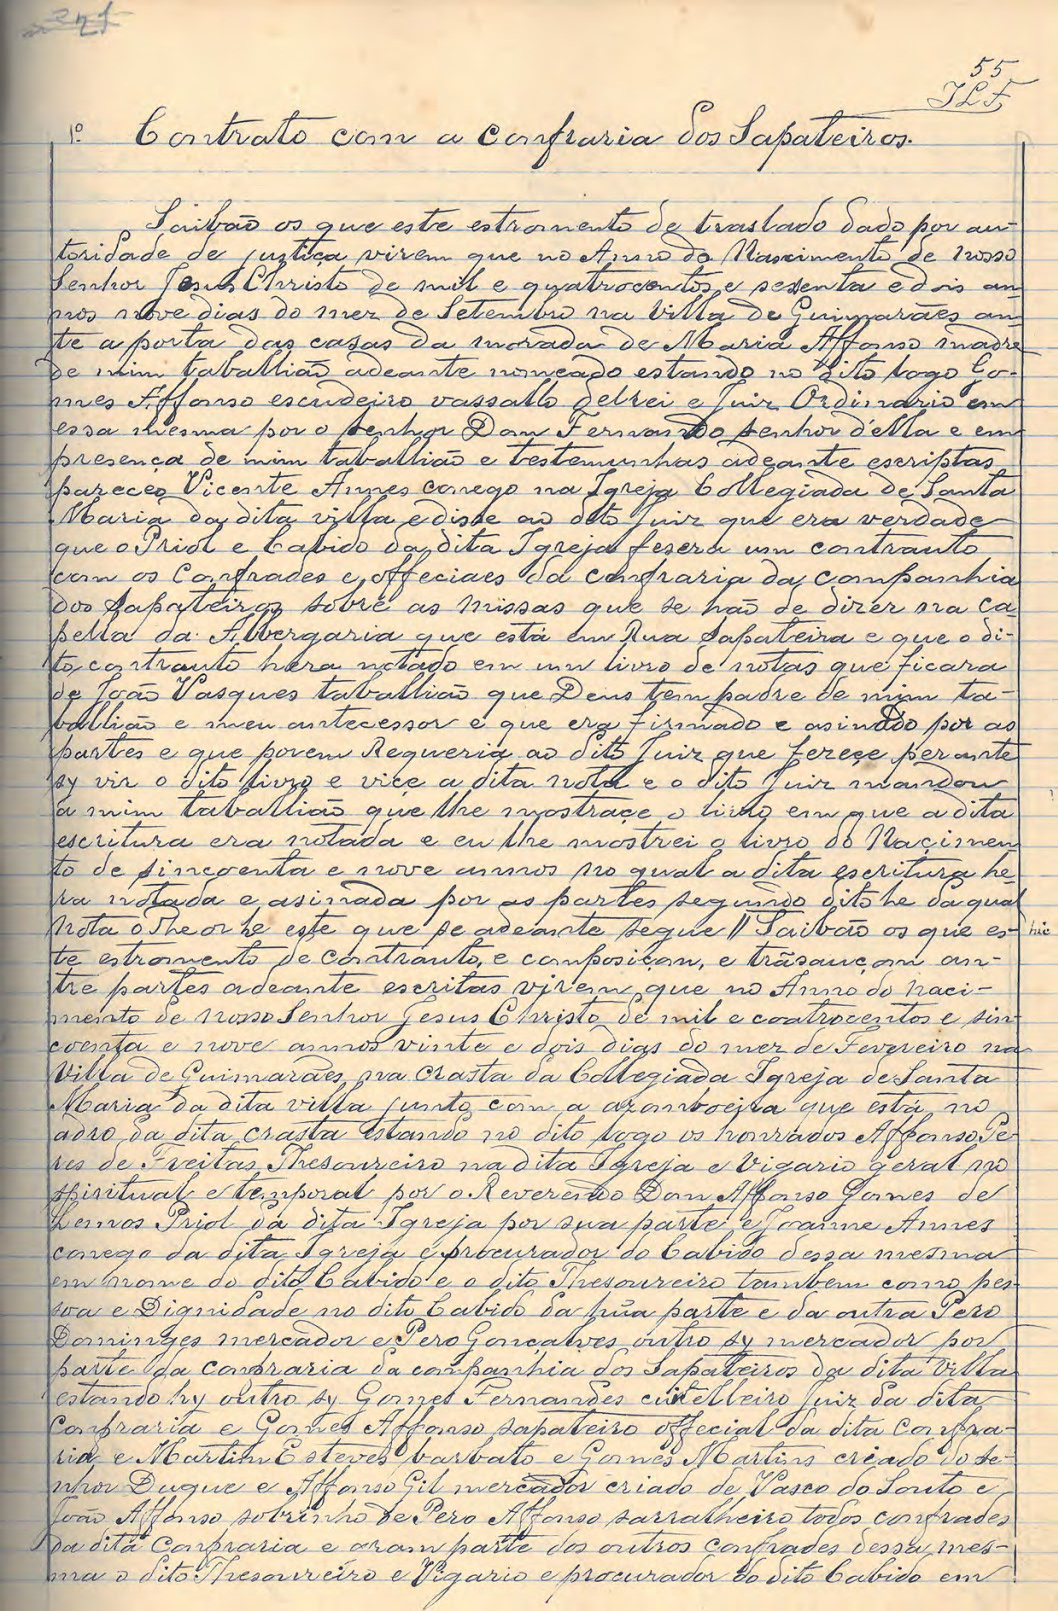 55
JLF
1º. Contrato com a Confraria dos Sapateiros.
Saibão os que este estromento de traslado dado por au-
toridade de justiça virem que no Anno do Nascimento de nosso
Senhor Jesus Christo de mil e quatrocentos e sessenta e dois an-
nos nove dias do mez de Setembro na Villa de Guimarães an-
te a porta das casas da morada de Maria Affonso madre
de mim taballião adeante nomeado estando no dito logo Go-
mes Affonso escudeiro vassallo delrei e Juiz Ordinario em
essa mesma por o senhor Dom Fernando senhor d'ella e em
presença de mim taballião e testemunhas adeante escriptas
pareceo Vicente Annes conego na Igreja Collegiada de Santa
Maria da dita villa e disse ao dito Juiz que era verdade
que o Priol e Cabido da dita Igreja fesera um contrauto
com os Confrades e offeciaes da confraria da companhia
dos Sapateiros sobre as missas que se hão de dizer na ca-
pella da Albergaria que está em Rua Sapateira e que o di-
to contrauto hera notado em um livro de notas que ficara
de João Vasques taballião que Deus tem padre de mim ta-
ballião e meu antecessor e que era firmado e asinado por as
partes e que porem Requeria ao dito Juiz que fezeçe perante
sy vir o dito livro e viçe a dita nota e o dito Juiz mandou
a mim taballião que lhe mostraçe o livro em que a dita
escritura era notada e eu lhe mostrei o livro do Naçimen
to de sincoenta e nove annos no qual a dita escritura he-
ra notada e asinada por as partes segundo dito he da qual
Nota o Theor he este que se adeante segue // Saibão os que es- hic
te estromento de contrauto, e composiçam, e trãsauçom an-
tre partes adeante escritas virem que no Anno do naci-
mento de nosso Senhor Jesus Christo de mil e coatrocentos e sin
coenta e nove annos vinte e dois dias do mez de Fevereiro na
Villa de Guimarães na Crasta da Collegiada Igreja de Santa
Maria da dita villa junto com a azamboeira que está no
adro da dita crasta estando no dito logo os honrados Affonso Pe-
res de Freitas Thesoureiro na dita Igreja e Vigario geral no
spiritual e temporal por o Reverendo Dom Affonso Gomes de
Lemos Priol da dita Igreja por sua parte e Joanne Annes
conego da dita Igreja e procurador do Cabido dessa mesma
em nome do dito Cabido e o dito Thesoureiro tambem como pes-
soa e Dignidade no dito Cabido da hũa parte e da outra Pero
Domingues mercador e Pero Gonçalves outro sy mercador por
parte da confraria da companhia dos Sapateiros da dita Villa
estando hy outro sy Gomes Fernandes cutelleiro Juiz da dita
Confraria e Gomes Affonso sapateiro official da dita Confra-
ria e Martim Esteves barbato e Gomes Martins criado do Se-
nhor Duque e Affonso Gil mercador criado de Vasco do Souto e
João Affonso sobrinho de Pero Affonso sarralheiro todos confrades
da dita Confraria e aram parte dos outros confrades dessa mes-
ma o dito Thesoureiro e Vigario e procurador do dito Cabido em